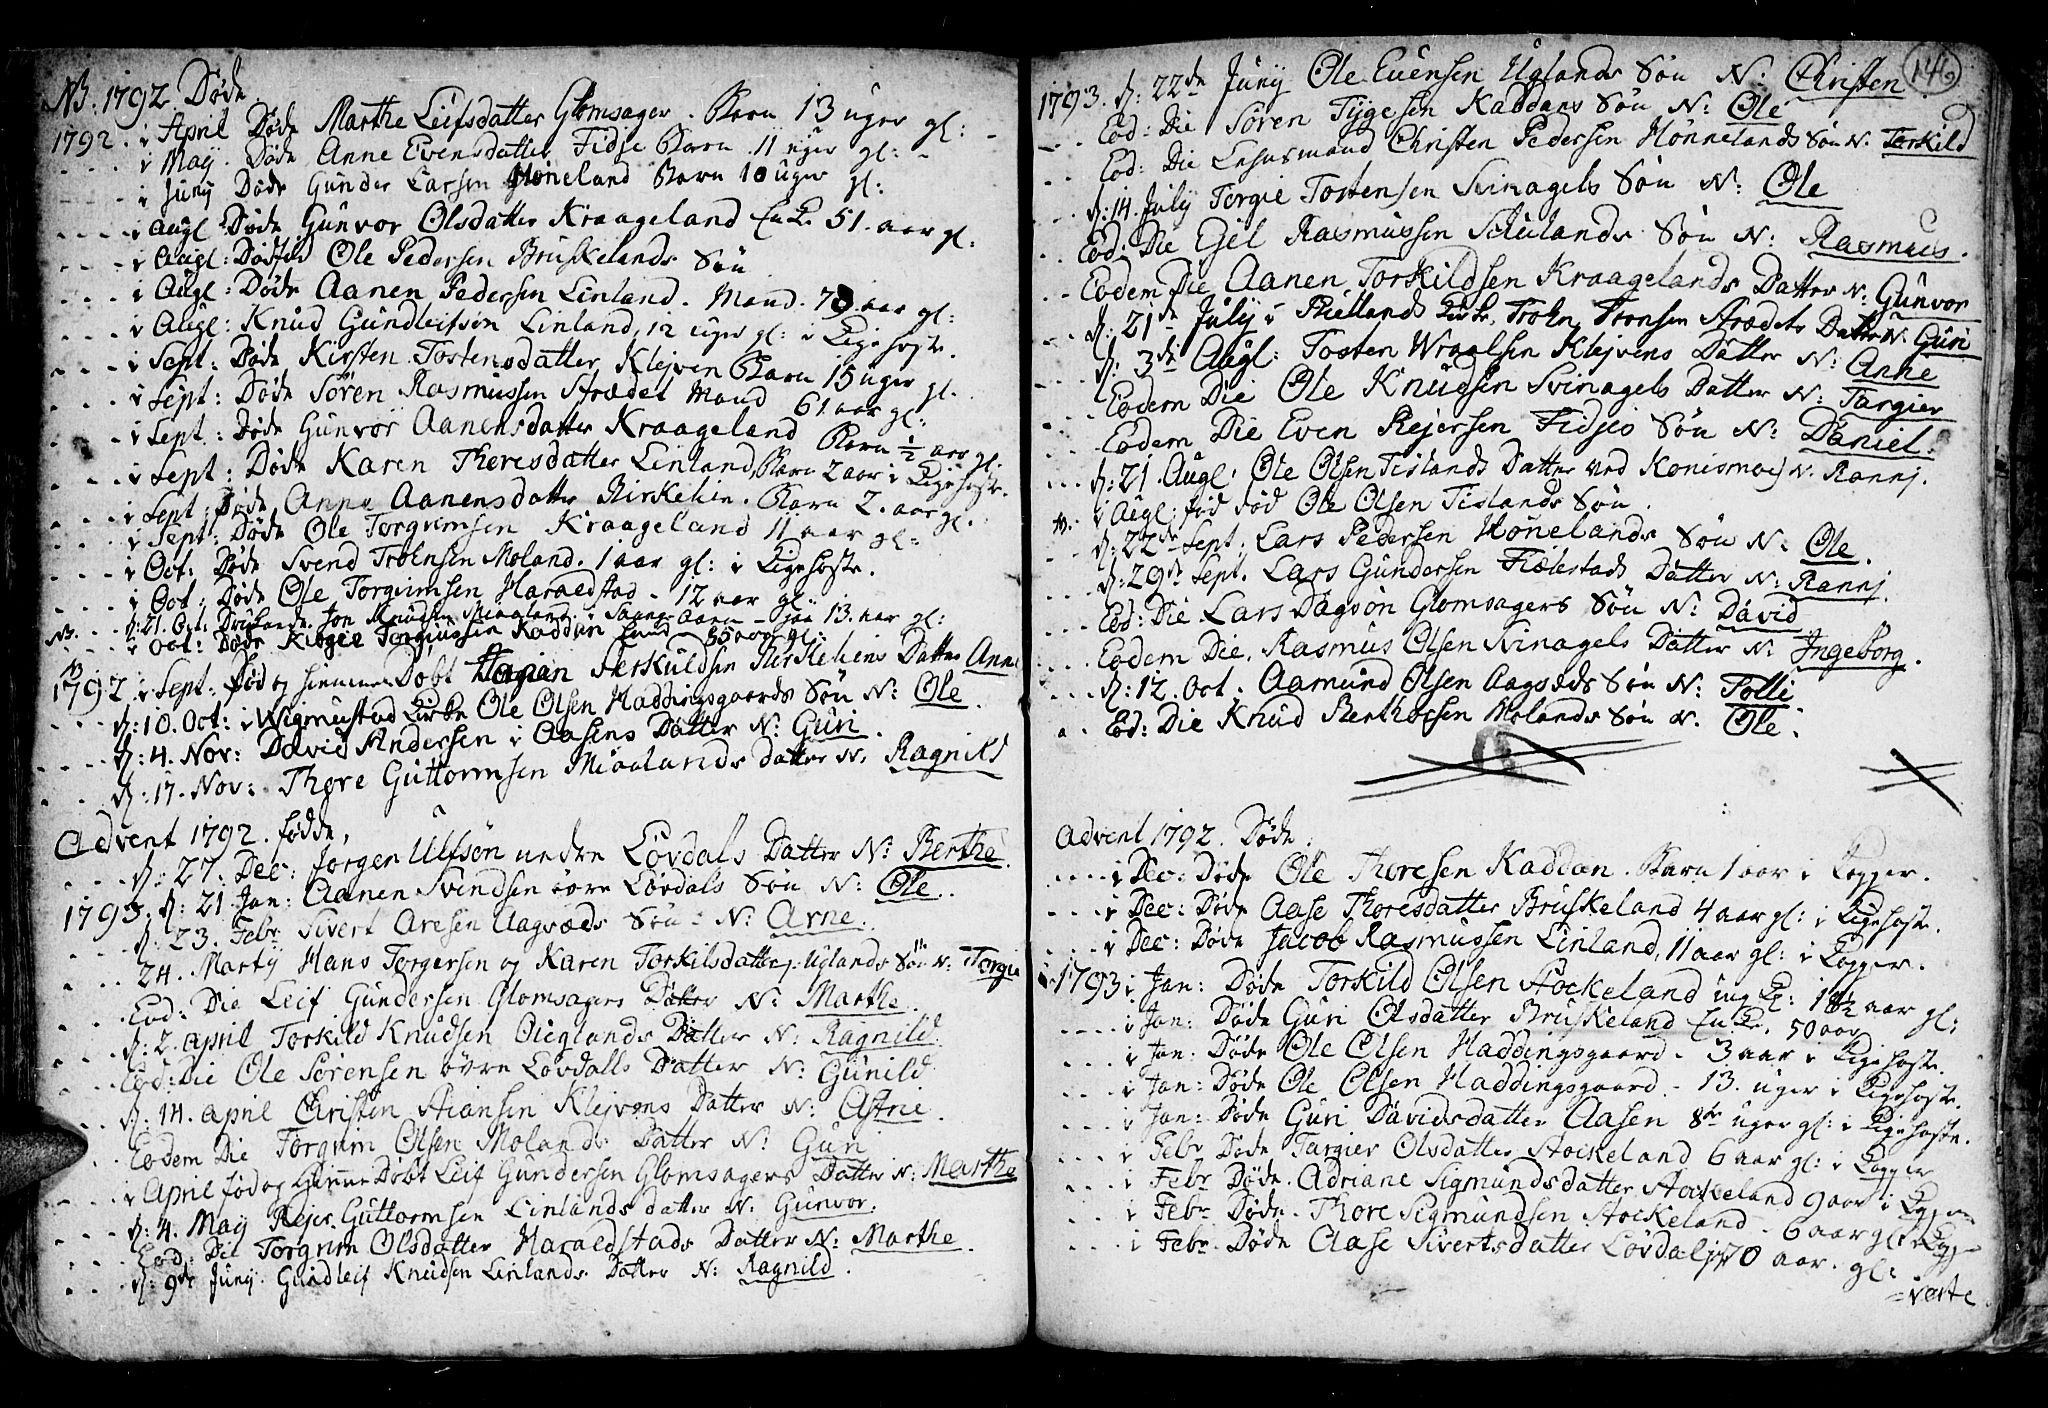 NB. 1792 Døde.
1792. i April Døde Marthe Leifsdatter Glomsager. Barn 13 uger gl: -
i Maij. Døde Anne Evensdatter Fidje Barn 11 uger gl: -
i Junij Døde Gunder Larsen Høneland Barn 10 uger gl:
i Augl Døde Gunvor Olsdatter Kraageland Enke 51. aar gl:
i Augl: Dødfød Ole Pedersen Bruskelands Søn
i Augl: Døde Aanen Pedersen Linland. Mand. 70 aar gl:
i Augl: Knud Gundleifsøn Linland, 12 uger gl: i Kigehoste.
i Sept: Døde Kirsten Tostensdatter Klejven Barn 15 uger gl.
i Sept: Døde Søren Rasmussen Strædet Mand 61 aar gl:
i Sept: Døde Gunvor Aanensdatter Kraageland Barn ½ aar gl:
i Sept: Døde Karen Theresdatter Linland, Barn 2 aar i Kigehoste.
i Sept: Døde Anne Aanensdatter Birkelien. Barn 2. aar gl.
i Sept: Døde Ole Torgrimsen Kraageland 11 aar gl:
i Oct: Døde Svend Trohnsen Moland. 1 aar gl: i Kigehoste.
i Oct: Døde Ole Torgrimsen Haraldstad - 12 aar gl:
NB. d: 21. Oct: Jon Knudsen 13. aar gl:
i Oct: Døde Torgiussen Kaddan 85 aar gl:
NB
1792 i Sept: fød og hiemmedøbt Torjan Terkildsen Birkeliens Datter Anne
d: 10. Oct: i Wigmustad Kirke Ole Olsen Haddingsgaards Søn N: Ole.
d: 4. Nov: David Andersen i Aasens Datter N: Guri.
d: 17. Nov: Thore Guttormsen Mioelands datter N. Ragnild
Advent 1792. fødde.
d: 27. Dec: Jørgen Ulfsøn nedre Løvdals Datter N: Berthe.
1793. d: 21 Jan: Aanen Svendsen øvre Løvdals Søn N: Ole.
d: 23. Febr Sivert Aresen Aagsæds Søn - N: Arne.
24. Martij Hans Torgersen og Karen Torkilsdatter Uglands Søn N: Torgie
Eod: Die Leif Gundersen Glomsagers Datter N: Marthe.
d: 2. April Torkild Knudsen Øieglands Datter N: Ragnild.
Eod: Die Ole Sørensen øvre Løvdalls Datter N: Gunild.
d: 14. April Christen Stiansen Klejvens Datter N: Astrie.
Eodem Die Torgrim Olsen Molands Datter N: Guri
i April fød og Hiemedøbt Leif Gundersen Glomsagers Datter N: Marthe
d: 4. Maij Rejer Guttormsen Linlands datter N: Gunvor.
Eod: Die Torgrim Olsdatter Haraldstads Datter N: Marthe.
d: 9de Junij. Gundleif Knudsen Linlands Datter N: Ragnild.
146
1793. d: 22de Junij Ole Evensen Uglands Søn N: Christen.
Eod: Die Søren Tygesen Kaddans Søn N: Ole
Eod: Die Lehnsmand Christen Pedersen Hønnelands Søn N. Torkild
d: 14. Julij Torgie Tostensen Svinagels Søn N: Ole
Eod: Die Ejel Rasmussen Schulands Søn N: Rasmus.
Eodem Die Aanen Torkildsen Kraagelands Datter N: Gunvor
d: 21de Julij i Bielland Kirke, Trohn Tronsen Strædets Datter N. Guri
d: 3de Augl: Tosten Wraalsen Klejvens Datter N: Anne
Eodem Die Ole Knudsen Svinagels Datter N: Targier
Eodem Die Even Rejersen Fidjes Søn N: Daniel.
d: 21. Augl: Ole Olsen Tislands Datter ved Konismoe N. Rannj.
N. i Augl: fød Død Ole Olsen Tislands Søn.
d: 22de Sept. Lars Pedersen Hønelands Søn N. Ole.
d: 29de Sept. Lars Gundersen Fiælestads Datter N: Rannj.
Eod: Die Lars Dagsøn Glomsagers Søn N: David
Eodem Die, Rasmus Olsen Svinagels Datter N: Ingeborg.
d: 12. Oct. Aamund Olsen Aagsæds Søn N: Tolli
Eod: Die Knud Berthoesen Molands Søn N. Ole.
Advent 1792. Døde.
i Dec: Døde Ole Thoresen Kaddan. Barn 1 aar i Kopper.
i Dec: Døde Aase Thoresdatter Bruskeland 4 aar gl: i Kigehoste.
i Dec: Døde Jacob Rasmussen Linland, 11 aar gl: i Kopper.
1793 i Jan: Døde Torkild Olsen Stockeland ung K: 18½ aar gl:
i Jan: Døde Guri Olsdatter Bruskeland Enke, 50 aar
i Jan: Døde Ole Olsen Haddingsgaard - 3 aar i Kigehoste.
i Jan: Døde Ole Olsen Haddingsgaard - 13. uger i Kigehoste.
i Jan: Døde Guri Davidsdatter Aasen 8te uger gl: i Kigehoste.
i Febr Døde Targier Olsdatter Stockeland 6 aar gl: i Kopper
i Febr Døde Adriane Sigmundsdatter Stockeland 9 aar i Kopper
i Febr Døde Thore Sigmundsen Stockeland - 6 aar gl: i Kopp
i Febr. Døde Aase Sivertsdatter Løvdal 70 aar. gl:
=verte